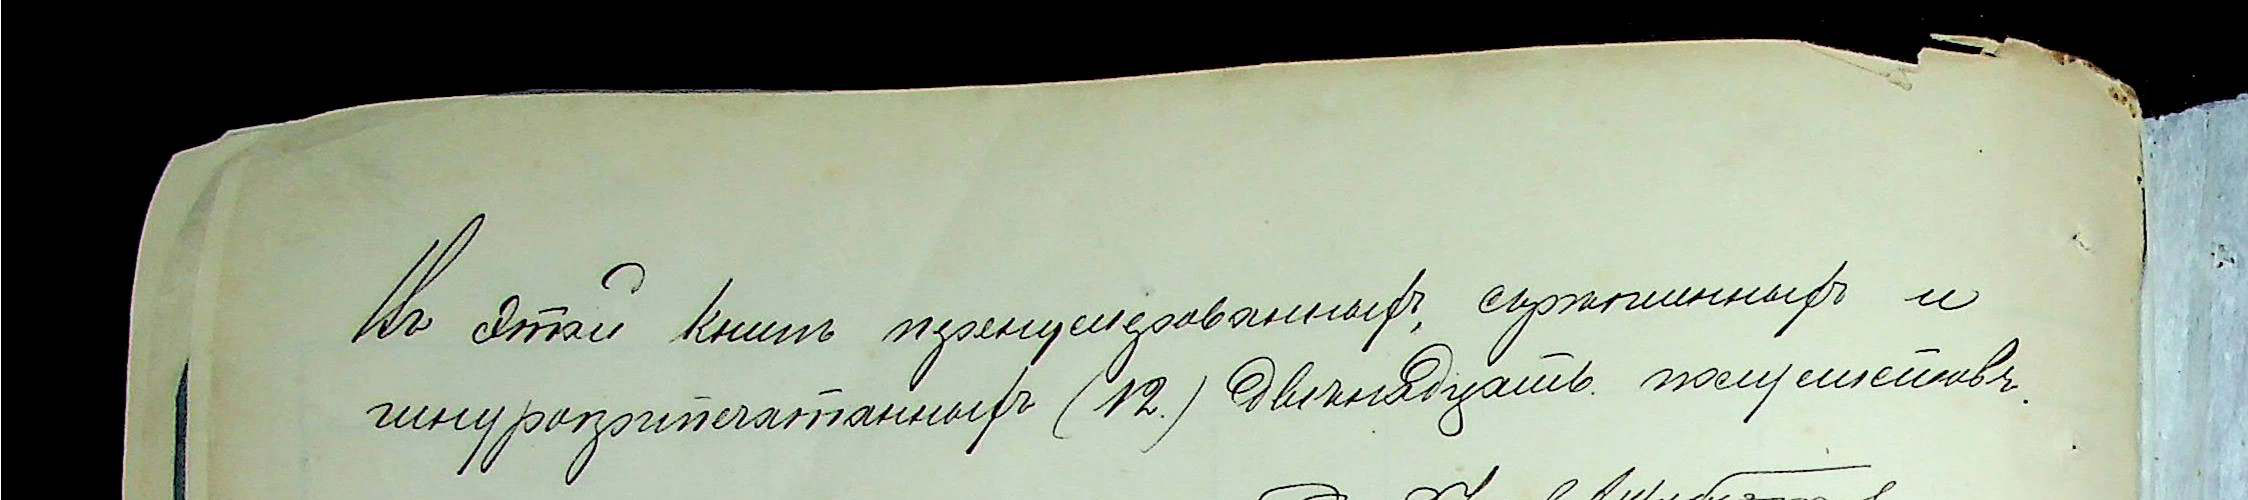 Въ этой книгѣ пренумерованныхъ, скрѣпленныхъ и
шнуроприпечатанныхъ (12.) двѣнадцать. полулистовъ.